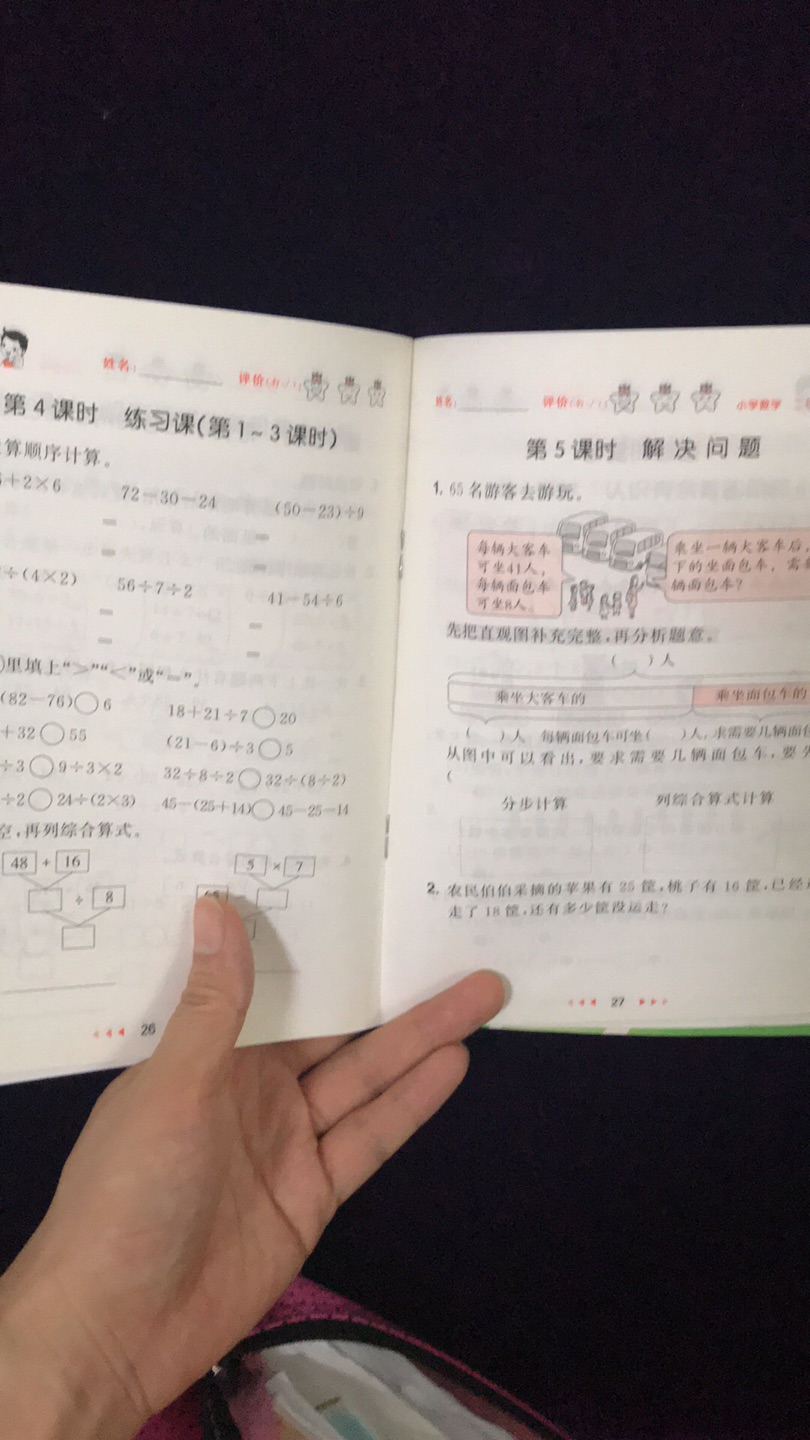 姓名:
评价
第4课时 练习课(第1~3课时)
算顺序计算。
+2×6 72-30-24 (50-23)÷9
= =
= =
÷(4×2) 56÷7÷2 41-54÷6
= =
= =
里填上“>”“<”或“=”。
(82-76)○6 18+21÷7○20
+32○55 (21-6)÷3○5
÷3○9÷3×2 32÷8÷2○32÷(8÷2)
÷2○24÷(2×3) 45-(25+14)○45-25-14
空,再列综合算式。
48 + 16 5 × 7
÷ 8
26
姓名:
评价
小学数学
第5课时 解决问题
1. 65名游客去游玩。
每辆大客车
可坐41人,
每辆面包车
可坐8人。
乘坐一辆大客车后,
下的坐面包车,需
辆面包车?
先把直观图补充完整,再分析题意。
( )人
乘坐大客车的 乘坐面包车的
( )人 每辆面包车可坐( )人,求需要几辆面
从图中可以看出,要求需要几辆面包车,要
(
分步计算 列综合算式计算
2. 农民伯伯采摘的苹果有25筐,桃子有16筐,已经
走了18筐,还有多少筐没运走?
27